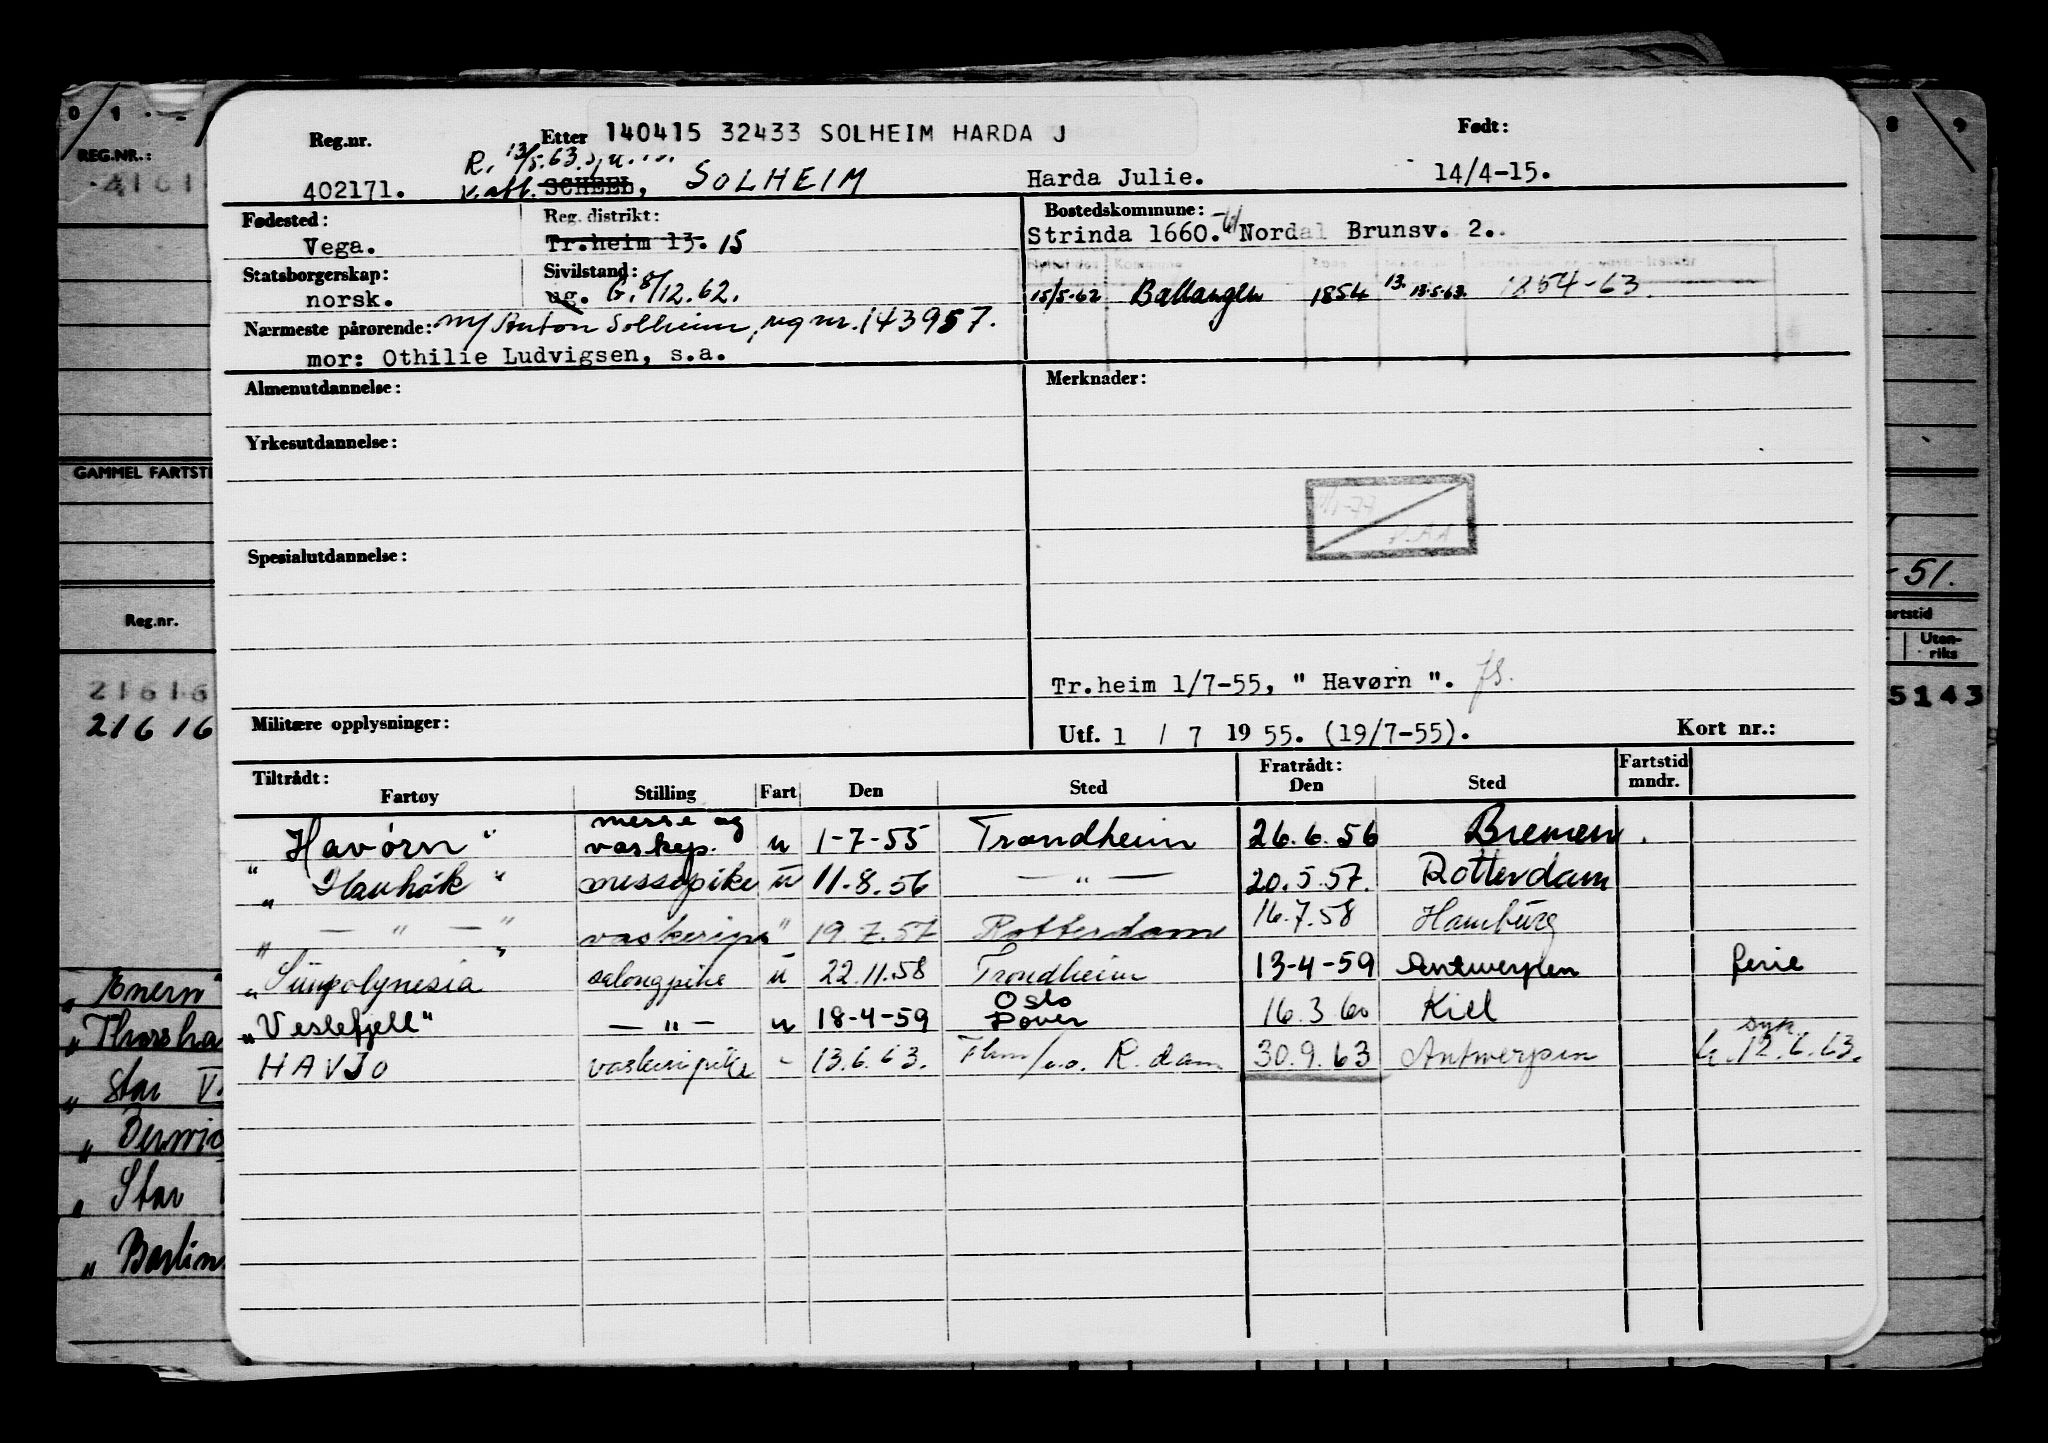 Reg.nr. Etter 140415 32433 SOLHEIM HARDA J Født:
R. 13/5.63.
402171. v.att. SCHEEL, SOLHEIM Harda Julie. 14/4-15.
Fødested: Reg. distrikt: Bostedskommune:
Vega. Tr.heim 13. 15 Strinda 1660. Nordal Brunsv. 2.
Statsborgerskap: Sivilstand:
norsk. ug. G. 8/12.62. 15/5-62 Ballangen 1854 13. 13.5.63. 1854-63.
Nærmeste pårørende: m/ Anton Solheim, reg nr. 143957.
mor: Othilie Ludvigsen, s.a.
Almenutdannelse: Merknader:
Yrkesutdannelse:
Spesialutdannelse:
Tr.heim 1/7-55, " Havørn ".
Militære opplysninger: Utf. 1 / 7 19 55. (19/7-55). Kort nr.:
Tiltrådt: Fratrådt: Fartstid
Fartøy Stilling Fart Den Sted Den Sted mndr.
messe og
" Havørn " vaskep. u 1-7-55 Trondheim 26.6.56 Bremen
" Haukåk " messepike u 11.8.56 — " — 20.5.57. Rotterdam
" — " — " vaskerip. " 19.7.57 Rotterdam 16.7.58 Hamburg
" Sunpolynesia " salongpike u 22.11.58 Trondheim 13-4-59 Antwerpen ferie
Oslo
"Veslefjell" — " — u 18-4-59 Dover 16.3.60 Kiel
syk.
HAVJO vaskeripike - 13.6.63. Thm/u.o. R.dam 30.9.63 Antwerpen 12.6.63.
0 1
REG.NR.:
GAMMEL FARTSTI
Reg.nr.
21616
21616
Thorsha
Star
Star
Berlin
8 9
-51.
artstid
Uten-
riks
5143